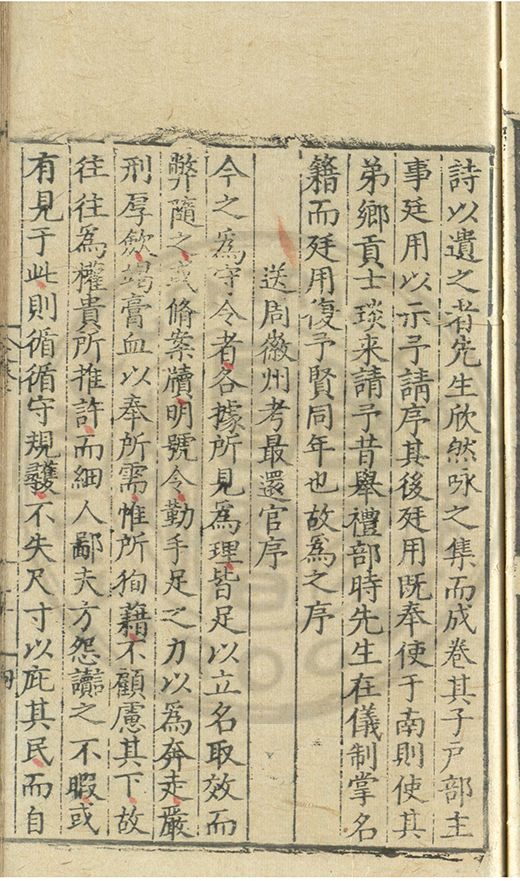 詩以遺之者先生欣然咏之集而成卷其子戸部主
事廷用以示予請序其後廷用既奉使于南則使其
弟鄉貢士琰来請予昔舉禮部時先生在儀制掌名
籍而廷用復予賢同年也故為之序
送周徽州考最還官序
今之為守令者各據所見為理皆足以立名取效而
弊隨之或脩案牘明號令勤手足之力以為奔走嚴
刑厚斂竭膏血以奉所需惟所狥藉不顧慮其下故
往往為權貴所推許而細人鄙夫方怨讟之不暇或
有見于此則循循守規矱不失尺寸以庇其民而自